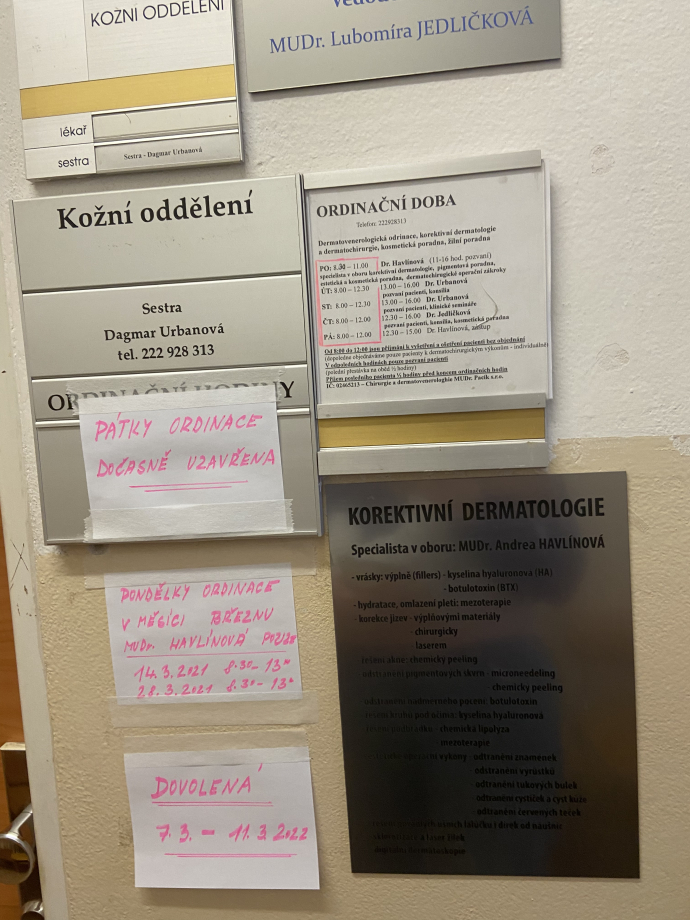 KOŽNÍ ODDĚLENÍ
lékař
sestra
Sestra - Dagmar Urbanová
MUDr. Lubomíra JEDLIČKOVÁ
Kožní oddělení
Sestra
Dagmar Urbanová
tel. 222 928 313
ORDINAČNÍ HODINY
PÁTKY ORDINACE
DOČASNĚ UZAVŘENA
PONDĚLKY ORDINACE
V MĚSÍCI BŘEZNU
MUDr. HAVLÍNOVÁ POUZE
14.3.2021 8:30 - 13°°
28.3.2021 8:30 - 13°°
DOVOLENÁ
7.3. - 11.3.2022
ORDINAČNÍ DOBA
Telefon: 222928313
Dermatovenerologická odrinace, korektivní dermatologie
a dermatochirurgie, kosmetická poradna, žilní poradna
PO: 8.30 – 11.00 Dr. Havlínová (11-16 hod. pozvaní)
specialista v oboru korektivní dermatologie, pigmentová poradna,
estetická a kosmetická poradna, dermatochirurgické operační zákroky
ÚT: 8.00 – 12.30 13.00 – 16.00 Dr. Urbanová
pozvaní pacienti, konsilia
ST: 8.00 – 12.30 13.00 – 16.00 Dr. Urbanová
pozvaní pacienti, klinické semináře
ČT: 8.00 – 12.00 12.30 – 16.00 Dr. Jedličková
pozvaní pacienti, konsilia, kosmetická poradna
PÁ: 8.00 – 12.00 12.30 – 15.00 Dr. Havlínová, zástup
Od 8:00 do 12:00 jsou přijímáni k vyšetření a ošetření pacienti bez objednání
(dopoledne objednáváme pouze pacienty k dermatochirurgickým výkonům - individuálně)
V odpoledních hodinách pouze pozvaní pacienti
(polední přestávka na oběd ½ hodiny)
Příjem posledního pacienta ½ hodiny před koncem ordinačních hodin
IČ: 02465213 – Chirurgie a dermatovenerologie MUDr. Pacík s.r.o.
KOREKTIVNÍ DERMATOLOGIE
Specialista v oboru: MUDr. Andrea HAVLÍNOVÁ
- vrásky: výplně (fillers) - kyselina hyaluronová (HA)
- botulotoxin (BTX)
- hydratace, omlazení pleti: mezoterapie
- korekce jizev - výplňovými materiály
- chirurgicky
laserem
řešení akné: chemický peeling
odstranění pigmentových skvrn - microneedeling
chemický peeling
odstranění nadměrného pocení: botulotoxin
řešení kruhů pod očima: kyselina hyaluronová
- chemická lipalýza
- mezoterapie
výkony - odtranění znamének
odstranění výrůstků
odtranění tukových bulek
odtranění cystiček a cyst kůže
- odtranění červených teček